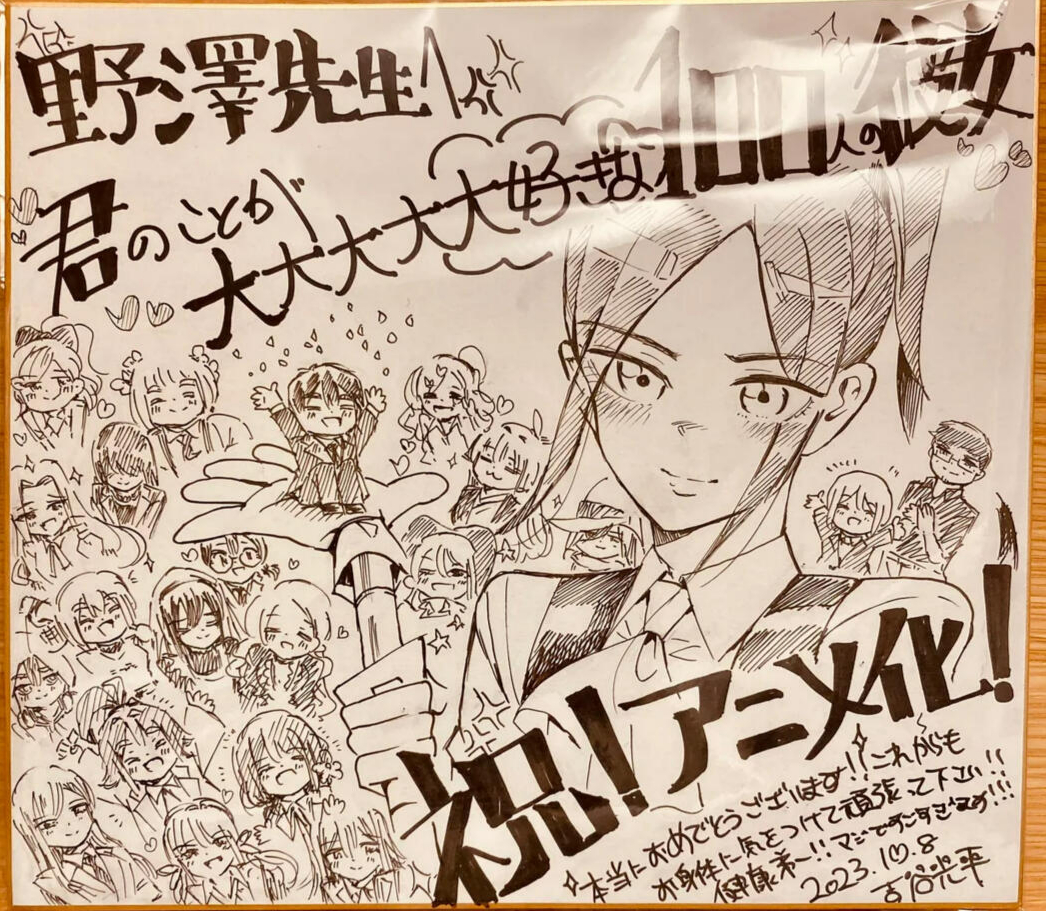 野澤先生！
君のことが
大大大大大好きな
100人の彼女
祝！アニメ化！
本当におめでとうございます!!これからも
お身体に気をつけて頑張って下さい!!
健康第一!!マジですごすぎます!!!
2023.10.8
吉谷光平